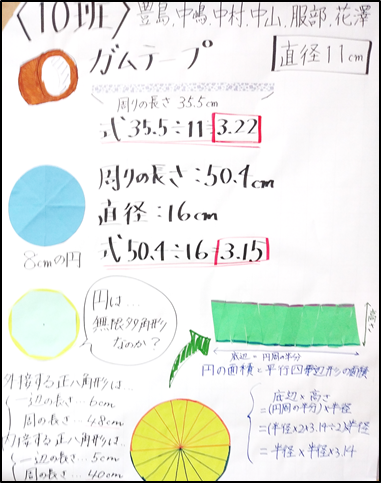 〈10班〉 豊島,中嶋,中村,中山,服部,花澤
ガムテープ
直径11cm
周りの長さ 35.5cm
式 35.5÷11=3.22
周りの長さ:50.4cm
直径:16cm
8cmの円
式 50.4÷16=3.15
円は…
無限多角形
なのか?
底辺=円周の半分
円の面積=平行四辺形の面積
外接する正八角形は
一辺の長さ…6cm
周の長さ…48cm
内接する正八角形は
一辺の長さ…5cm
周の長さ…40cm
底辺×高さ
=(円周の半分)×半径
=(半径×2×3.14÷2)×半径
=半径×半径×3.14